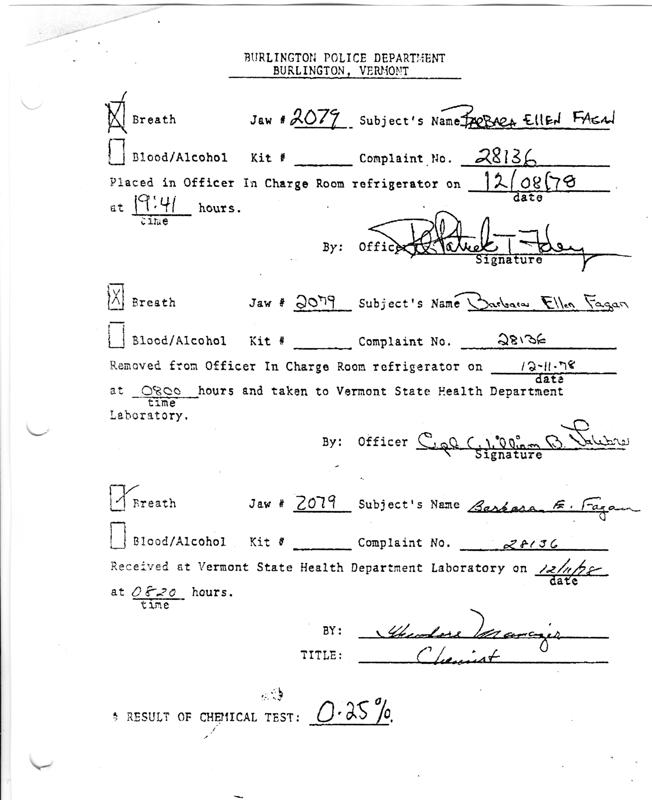 BURLINGTON POLICE DEPARTMENT
BURLINGTON, VERMONT
Breath Jaw # 2079 Subject's Name BARBARA EllEN FAGAN
Blood/Alcohol Kit # Complaint No. 28136
Placed in Officer In Charge Room refrigerator on 12/08/78
date
at 19:41 hours.
time
By: Officer Patrick T.
Signature
Breath Jaw # 2079 Subject's Name Barbara Ellen Fagan
Blood/Alcohol Kit # Complaint No. 28136
Removed from Officer In Charge Room refrigerator on 12-11-78
date
at 0800 hours and taken to Vermont State Health Department
time
Laboratory.
By: Officer Cpl William B.
Signature
Breath Jaw # 2079 Subject's Name Barbara E. Fagan
Blood/Alcohol Kit # Complaint No. 28136
Received at Vermont State Health Department Laboratory on 12/11/78
date
at 0820 hours.
time
BY: Theodore
TITLE: Chemist
RESULT OF CHEMICAL TEST: 0.25%.